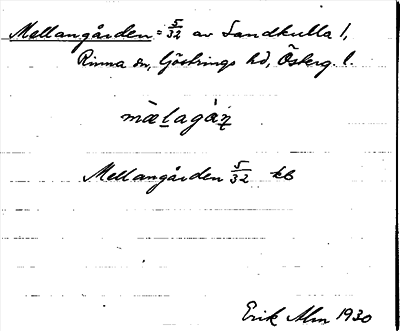 Mellangården = 5/32 av Sandkulla 1,
Rinna sn, Göstrings hd, Österg. l.
mælagàṉ
Mellangården 5/32 kb
Erik Alm 1930